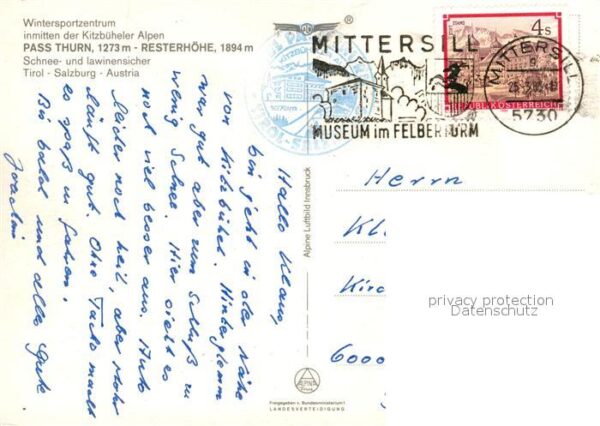 Wintersportzentrum
inmitten der Kitzbüheler Alpen
PASS THURN, 1273 m - RESTERHÖHE, 1894 m
Schnee- und lawinensicher
Tirol - Salzburg - Austria
Hallo Klaus,
bin jetzt in der Nähe
von Kitzbühel. Hinterglemm
war gut aber zum Schluß zu
wenig Schnee. Hier sieht es
noch viel besser aus. Auto
leider noch heil, aber
läuft gut. Ohne Tacho macht
es spaß zu fahren.
Bis bald und alles Gute
Joachim
Alpine Luftbild Innsbruck
ALPINE
Freigegeben v. Bundesministerium f.
LANDESVERTEIDIGUNG
MITTERSILL
MUSEUM im FELBERTURM
STAMS
4 s
REPUBLIK ÖSTERREICH
MITTERSILL
5730
Herrn
Kl
Kirc
6000
privacy protection
Datenschutz